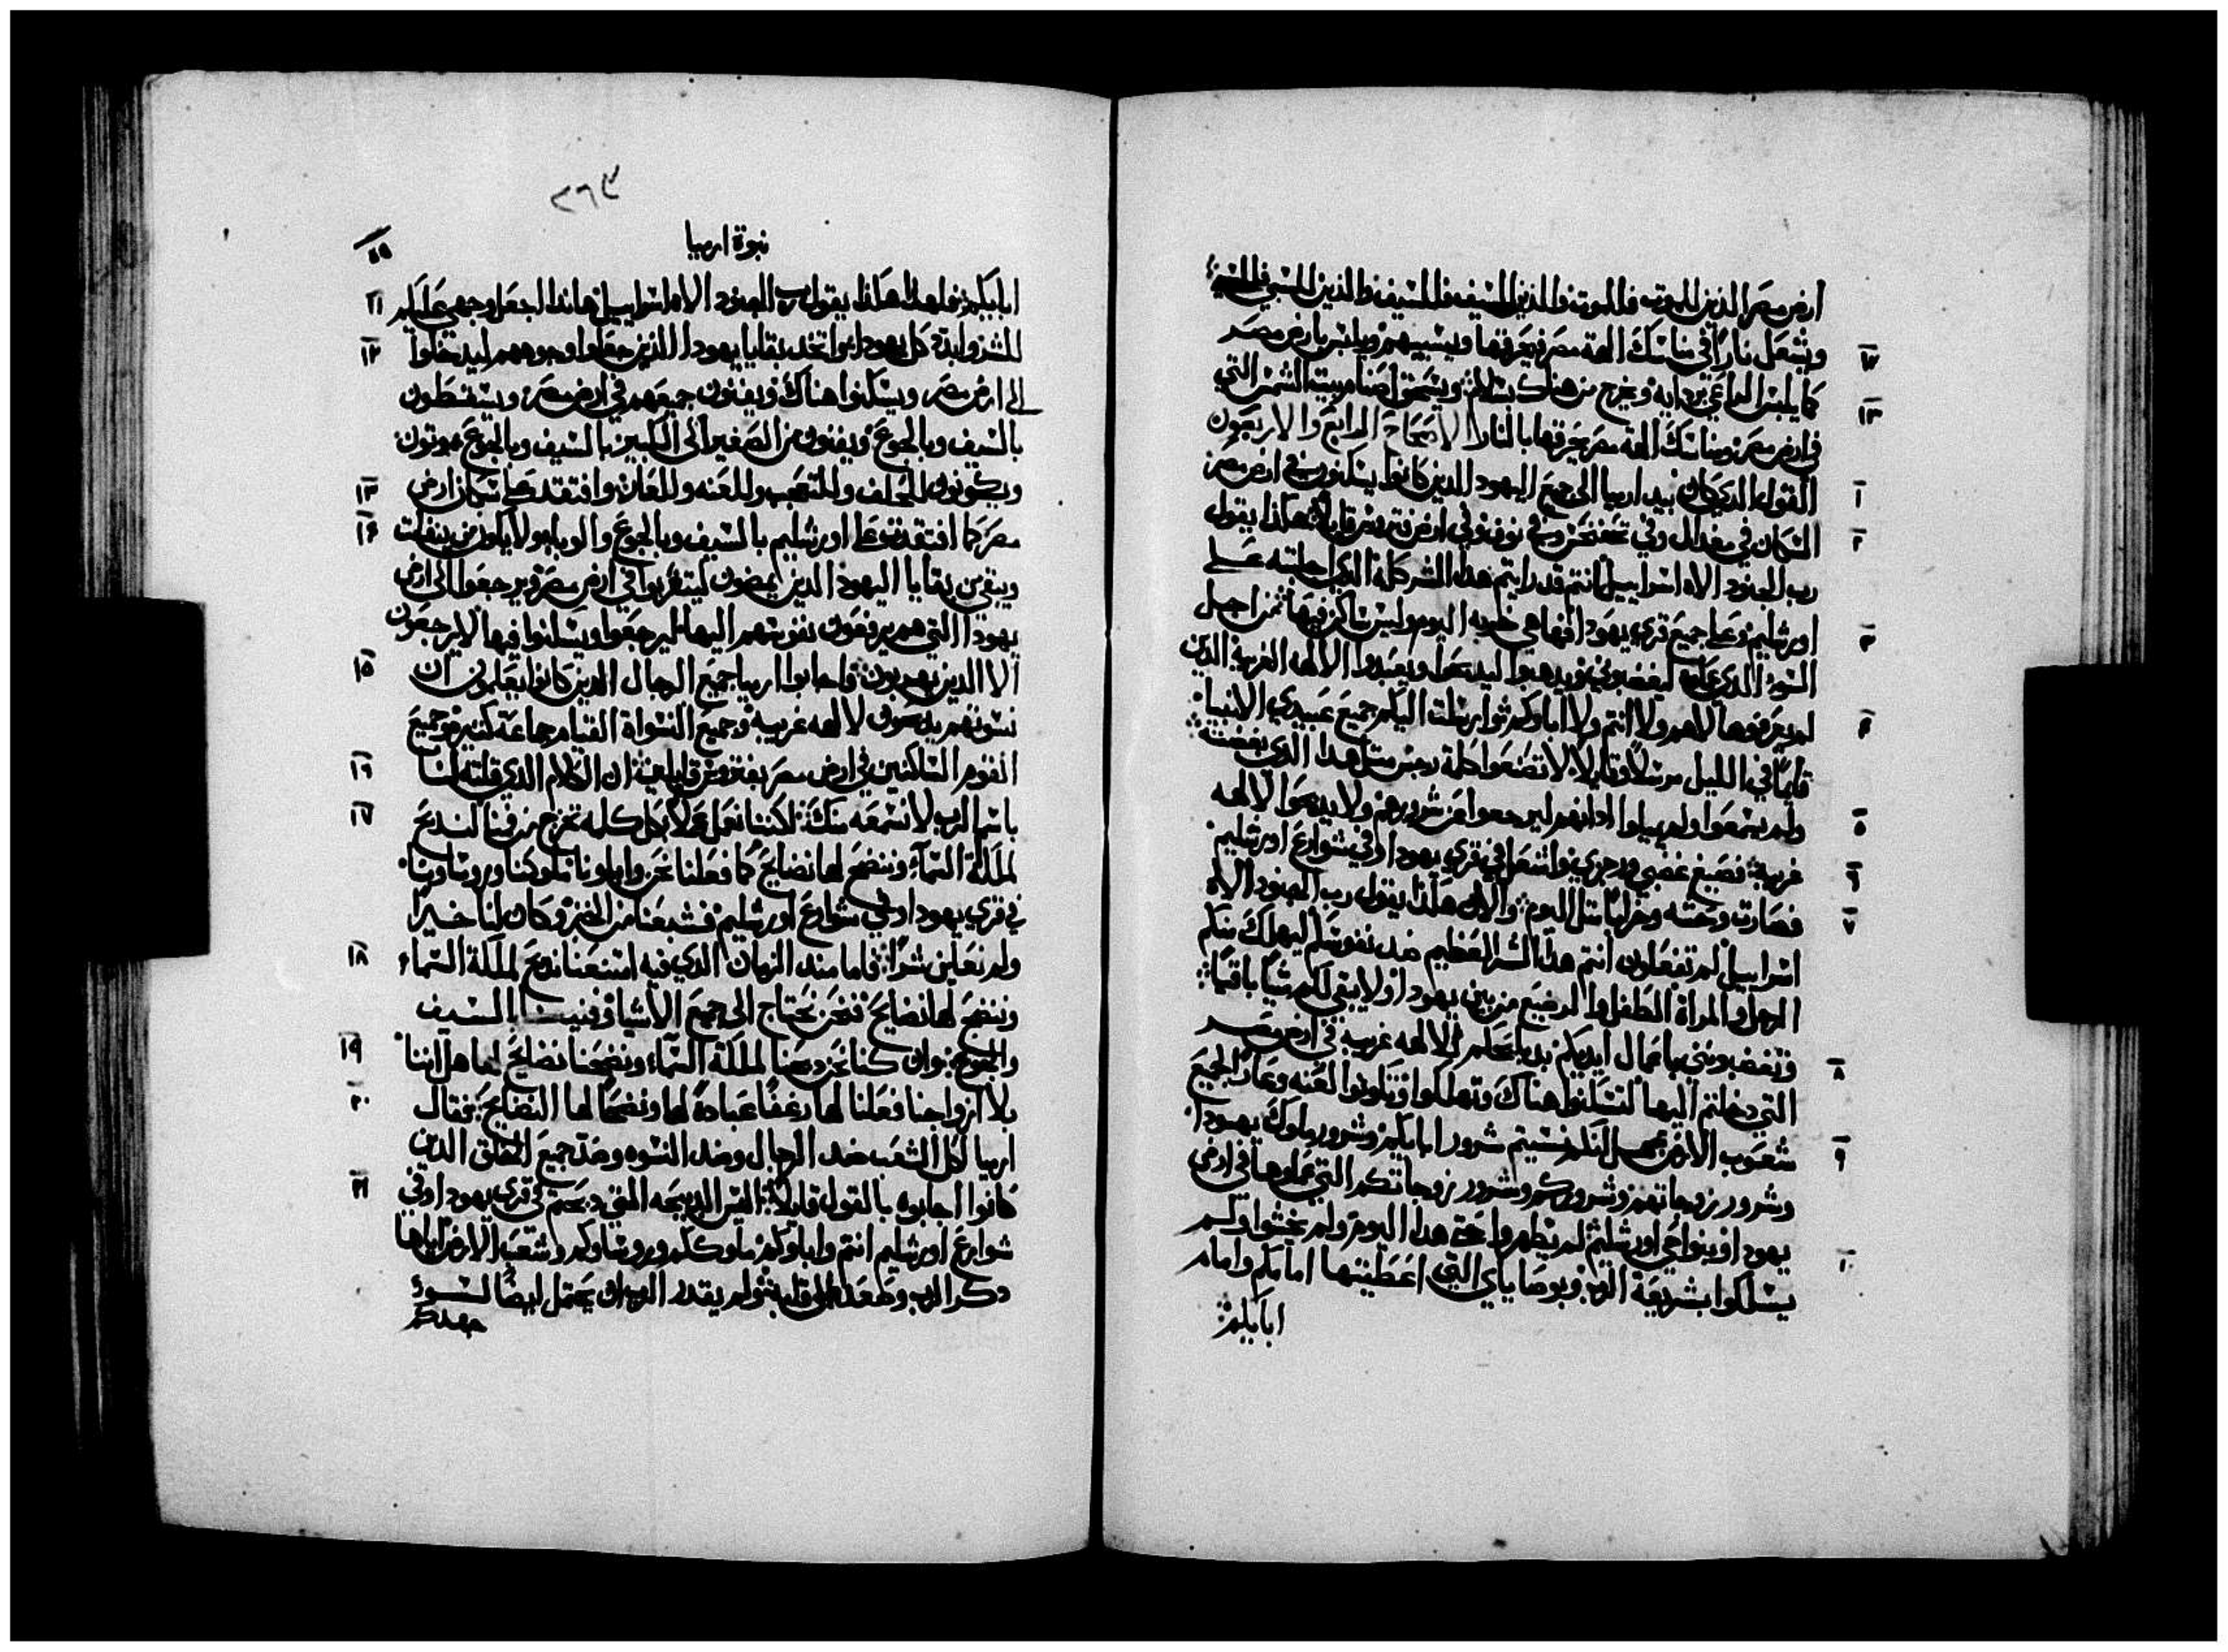 ارض مصر الذين للموت فللموت والذين للسيف فللسيف والذين للسبي فللسبي
١٢ ويشعل نارا في مناسك الهة مصر فيحرقها ويسبيهم ويلبس بارض مصر
١٣ كما يلبس الراعي بردايه ويخرج من هناك بسلام ويسحق اصنام بيت الشمس التي
في ارض مصر ومناسك الهة مصر يحرقها بالنار الاصحاح الرابع والاربعون
١ القول الدي كان بيد ارميا الى جميع اليهود الدين كانوا يسكنون في ارض مصر
٢ السكان في مغدال وفي تحفنحس وفي نوف وفي ارض فتروس قايلا هكذا يقول
رب الجنود الاه اسراييل انتم قد رايتم هدا الشر كله الدي اجلبته على
٣ اورشليم وعلى جميع قرى يهودا فها هي خاربه اليوم وليس ساكن فيها من اجل
السوء الدي عملوه ليغضبوني ويدهبوا ليدبحوا ويعبدوا الالهه الغريبة الدين
٤ لم يعرفوها لاهم ولا انتم ولا اباوكم ثم ارسلت اليكم جميع عبيدي الانبيا
قايما في الليل مرسلا وقايلا لا تصنعوا كلمة رجس مثل هدا الدي بغضته
٥ ولم يسمعوا ولم يميلوا ادانهم ليرجعوا عن شرورهم ولا يدبحوا لالهه
٦ غريبة فصبغ غضبي ورجزي واشتعل في قرى يهودا وفي شوارع اورشليم
٧ فصارت وحشه وخرابا مثل اليوم والان هكذا يقول رب الجنود الاه
اسراييل لم تفعلون انتم هدا الشر العظيم ضد نفوسكم ليهلك منكم
الرجل والمراة الطفل والرضيع من بين يهودا ولا يبقى لكم شيا باقيا
٨ وتغضبوني باعمال ايديكم بدبحكم لالهه غريبه في ارض مصر
التي دخلتم اليها لتسكنوا هناك وتهلكوا وتكونوا لعنه وعارا لجميع
٩ شعوب الارض لعل انكم نسيتم شرور ابايكم وشرور ملوك يهودا
وشرور زوجاتهم وشروركم وشرور زوجاتكم التي عملوها في ارض
١٠ يهودا وبنواحي اورشليم لم يطهروا حتى هدا اليوم ولم يخشوا ولم
يسلكوا بشريعة الرب وبوصاياي التي اعطيتها امامكم وامام
ابايكم
٢٦٣
نبوة ارميا
١١ ابايكم فلهدا هكذا يقول رب الجنود الاه اسراييل هاندا اجعل وجهي عليكم
١٢ للشر وابدد كل يهودا واتخد بقايا يهودا الذين جعلوا وجوههم ليدخلوا
الى ارض مصر ويسكنوا هناك ويفنون جميعهم في ارض مصر ويسقطون
بالسيف وبالجوع ويفنون من الصغير الى الكبير بالسيف وبالجوع يموتون
١٣ ويكونون للحلف وللتعجب وللعنه وللعار وافتقد على سكان ارض
١٤ مصر كما افتقدت على اورشليم بالسيف وبالجوع والوبا ولا يكون من ينفلت
ويبقى من بقايا اليهود الدين يمضون ليتغربوا في ارض مصر ويرجعوا الى ارض
يهودا التي هم يرفعون نفوسهم اليها ليرجعوا ويسكنوا فيها لا يرجعون
١٥ الا الدين يهربون فاجابوا ارميا جميع الرجال الدين كانوا يعلمون ان
نسوتهم يدبحون لالهه غريبه وجميع النسواة القيام جماعة كثيرة وجميع
١٦ القوم الساكنين في ارض مصر بفتروس قايلين ان الكلام الدي قلته لنا
١٧ باسم الرب لا نسمعه منك لكننا نعمل عملا بكل كلمه تخرج من فمنا لندبح
لملكة السماء وننضح لها نضايح كما فعلنا نحن وابهاتنا ملوكنا وروساونا
في قرى يهودا وفي شوارع اورشليم فشبعنا من الخبز وكان لنا خيرا
١٨ ولم نعاين شرا فاما مند الزمان الدي فيه امتنعنا ندبح لملكة السماء
وننضح لها نضايح فنحن نحتاج الى جميع الاشيا وفنينا بالسيف
١٩ والجوع وان كنا نحن دبحنا لملكة السماء ونضحنا نضايح لها هل اننا
٢٠ بلا ازواجنا فعلنا لها رغفا عبادة لها ونضحنا لها النضايح فقال
ارميا لكل الشعب ضد الرجال وضد النسوه وضد جميع الخلق الدين
٢١ كانوا اجابوه بالقول قايلا اليس الدبيحه التي دبحتم في قرى يهودا وفي
شوارع اورشليم انتم واباوكم ملوككم وروساوكم وشعب الارض اياها
دكر الرب وطلعت الى قلبه ولم يقدر الرب ان يحتمل ايضا لسوء
جهدكم